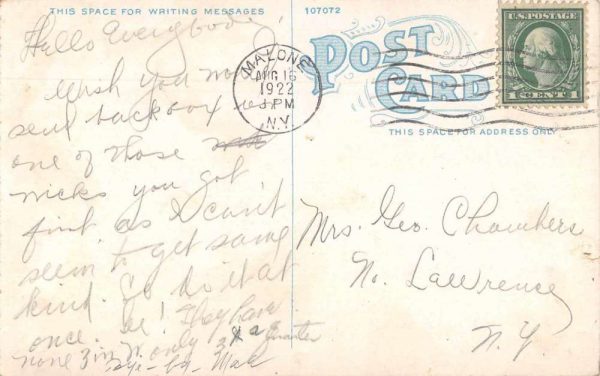 THIS SPACE FOR WRITING MESSAGES
Hello Everybody!
Wish you may
send back box
one of those
wicks you got
first as I can't
seem to get same
kind. So do it at
once. They have
none 3 in. only 3 & a quarter
107072
POST CARD
THIS SPACE FOR ADDRESS ONLY
MALONE
AUG 16
1922
PM
N.Y.
U.S. POSTAGE
1 CENT 1
Mrs. Geo. Chambers
No. Lawrence
N.Y.